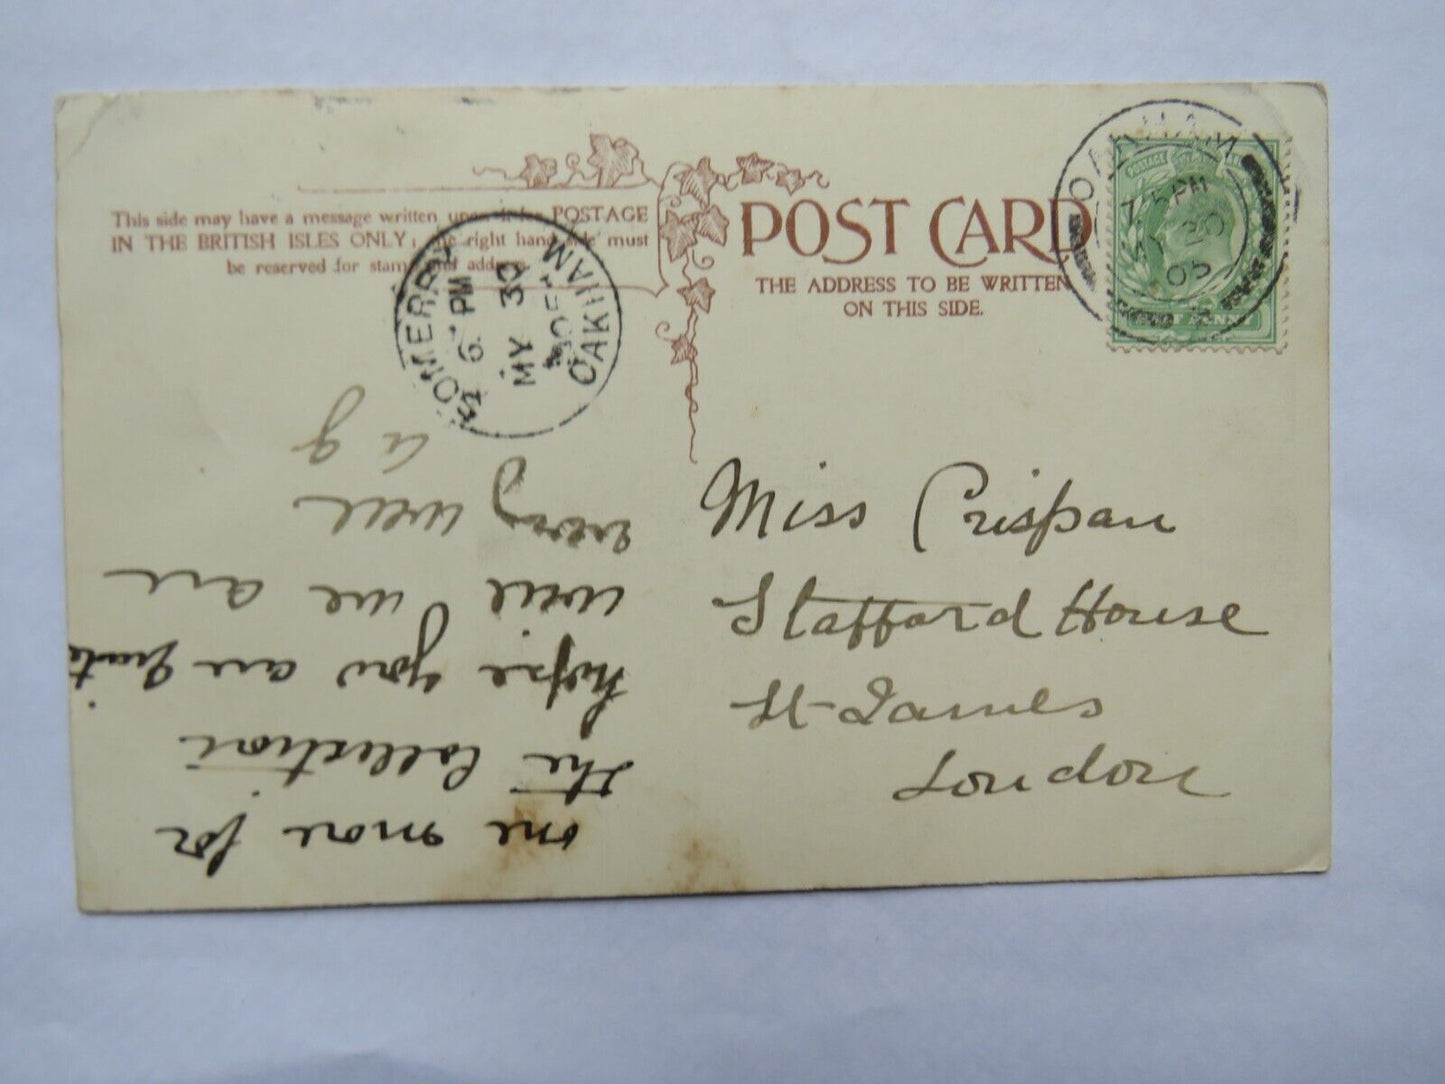 This side may have a message written upon it for POSTAGE
IN THE BRITISH ISLES ONLY; the right hand side must
be reserved for stamp and address.
POST CARD
THE ADDRESS TO BE WRITTEN
ON THIS SIDE.
OAKHAM
7.15 PM
MY 30
05
HALFPENNY
SOMERBY
6. PM
MY 30
05
OAKHAM
Miss Crispan
Stafford House
St James
London
one more for
the Collection
hope you are quite
well we are
very well
a g